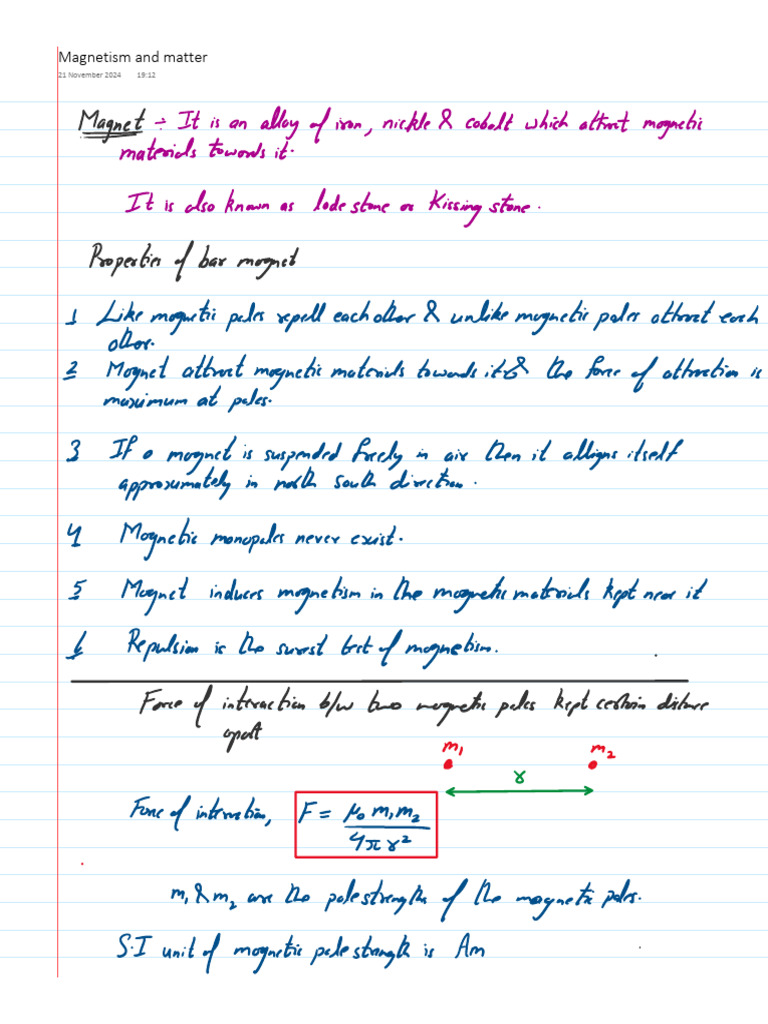 Magnetism and matter
21 November 2024 19:12
Magnet ÷ It is an alloy of iron, nickle & cobalt which attract magnetic
materials towards it.
It is also known as lode stone or Kissing stone.
Properties of bar magnet
1 Like magnetic poles repell each other & unlike magnetic poles attract each
other.
2 Magnet attract magnetic materials towards it & the force of attraction is
maximum at poles.
3 If a magnet is suspended freely in air then it alligns itself
approximately in north south direction.
4 Magnetic monopoles never exist.
5 Magnet induces magnetism in the magnetic materials kept near it
6 Repulsion is the surest test of magnetism.
Force of interaction b/w two magnetic poles kept certain distance
apart
m₁ m₂
r
Force of interaction, F = μ₀ m₁m₂ / 4π r²
m₁ & m₂ are the pole strength of the magnetic poles.
S.I unit of magnetic pole strength is Am